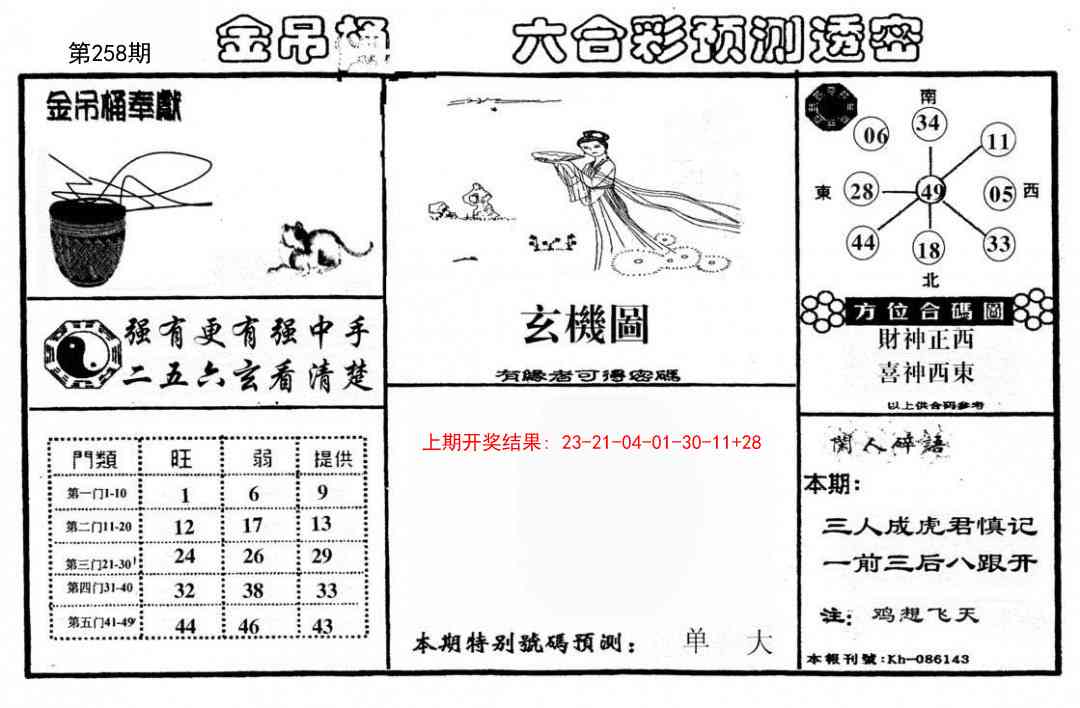 第258期
金吊桶 六合彩预测透密
金吊桶奉獻
强有更有强中手
二五六玄看清楚
門類 旺 弱 提供
第一门1-10 1 6 9
第二门11-20 12 17 13
第三门21-30 24 26 29
第四门31-40 32 38 33
第五门41-49 44 46 43
玄機圖
有緣者可得密碼
上期开奖结果：23-21-04-01-30-11+28
本期特别號碼預测： 单 大
南
06 34 11
東 28 49 05 西
44 18 33
北
方位合碼圖
財神正西
喜神西東
以上供合码参考
閑人碎語
本期：
三人成虎君慎记
一前三后八跟开
注：鸡想飞天
本報刊號:Kh-086143